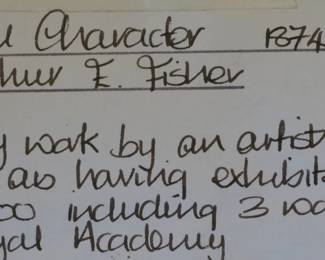 Character 1874
hur E. Fisher
work by an artist
as having exhibit
00 including 3
yal Academy